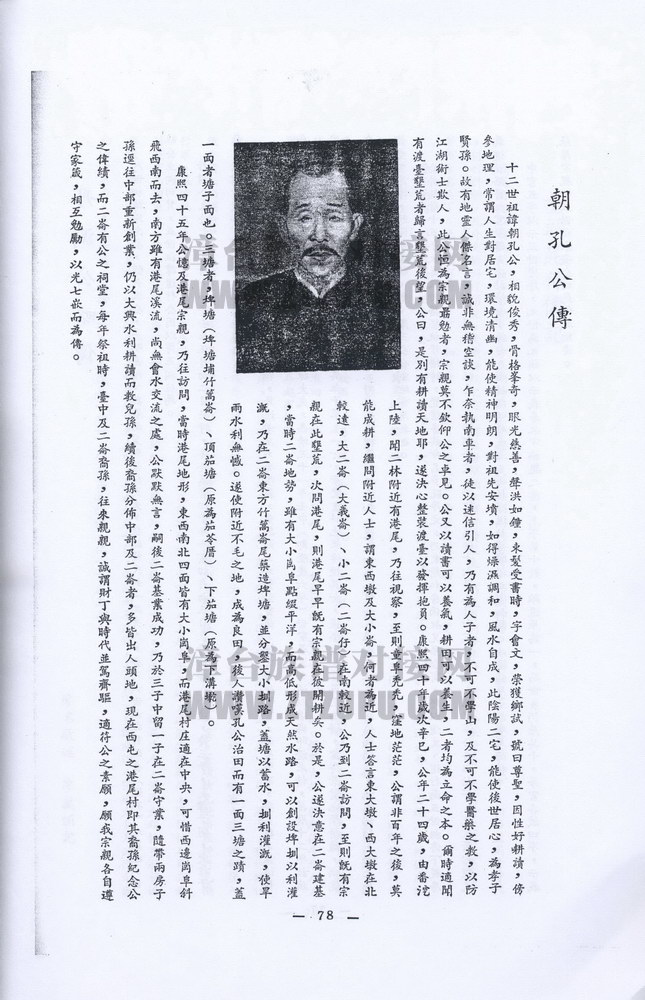 朝孔公傳
十二世祖諱朝孔公，相貌俊秀，骨格峯奇，眼光慈善，聲洪如鐘，束髮受書時，字會文，榮獲鄉試，號曰尊聖，因性好耕讀，傍
參地理，常謂人生對居宅，環境清幽，能使精神明朗，對祖先安墳，如得燥濕調和，風水自成，此陰陽二宅，能使後世居心，為孝子
賢孫。故有地靈人傑名言，誠非無稽空談，乍奈執南車者，徒以迷信引人，乃有為人子者，不可不學山，及不可不學醫藥之教，以防
江湖術士欺人，此公恒為宗親勗勉者，宗親莫不欽仰公之卓見。公又以讀書可以養氣，耕田可以養生，二者均為立命之本。爾時適聞
有渡臺墾荒者歸言墾荒後望，公曰，是別有耕讀天地耶，遂決心整裝渡臺以發揮抱負。康熙四十年歲次辛巳，公年二十四歲，由番挖
上陸，聞二林附近有港尾，乃往視察，至則童阜禿禿，窪地茫茫，公謂非百年之後，莫
能成耕，繼問附近人士，謂東西墩及大小崙，何者為近，人士答言東大墩、西大墩在北
較遠，大二崙（大義崙）、小二崙（二崙仔）在南較近，公乃到二崙訪問，至則既有宗
親在此墾荒，次問港尾，則港尾早早既有宗親在彼開耕矣。於是，公遂決意在二崙建基
，當時二崙地勢，雖有大小崗阜點綴平洋，而高低形成天然水路，可以創設埤圳以利灌
溉，乃在二崙東方什萬崙尾築造埤塘，並分鑿大小圳路，蓋塘以蓄水，圳利灌溉，使旱
雨水利無憾。遂使附近不毛之地，成為良田，後人讚嘆孔公治田而有一面三塘之蹟，蓋
一面者塘子面也。三塘者，埤塘（埤塘埔什萬崙）、頂茄塘（原為茄苳厝）、下茄塘（原為下溝墘）。
康熙四十五年公憶及港尾宗親，乃往訪問，當時港尾地形，東西南北四面皆有大小崗阜，而港尾村庄適在中央，可惜西邊崗阜斜
飛西南而去，南方雖有港尾溪流，尚無會水交流之處，公默默無言，嗣後二崙基業成功，乃於三子中留一子在二崙守業，隨帶兩房子
孫逕往中部重新創業，仍以大興水利耕讀而教兒孫，續後裔孫分佈中部及二崙者，多皆出人頭地，現在西屯之港尾村即其裔孫紀念公
之偉績，而二崙有公之祠堂，每年祭祖時，臺中及二崙裔孫，往來親親，誠謂財丁與時代並駕齊驅，適符公之素願，願我宗親各自遵
守家箴，相互勉勵，以光七嵌而為傳。
漳台族谱对接网
WWW.ZTZUPU.COM
漳台族谱对接网
WWW.ZTZUPU.COM
— 78 —